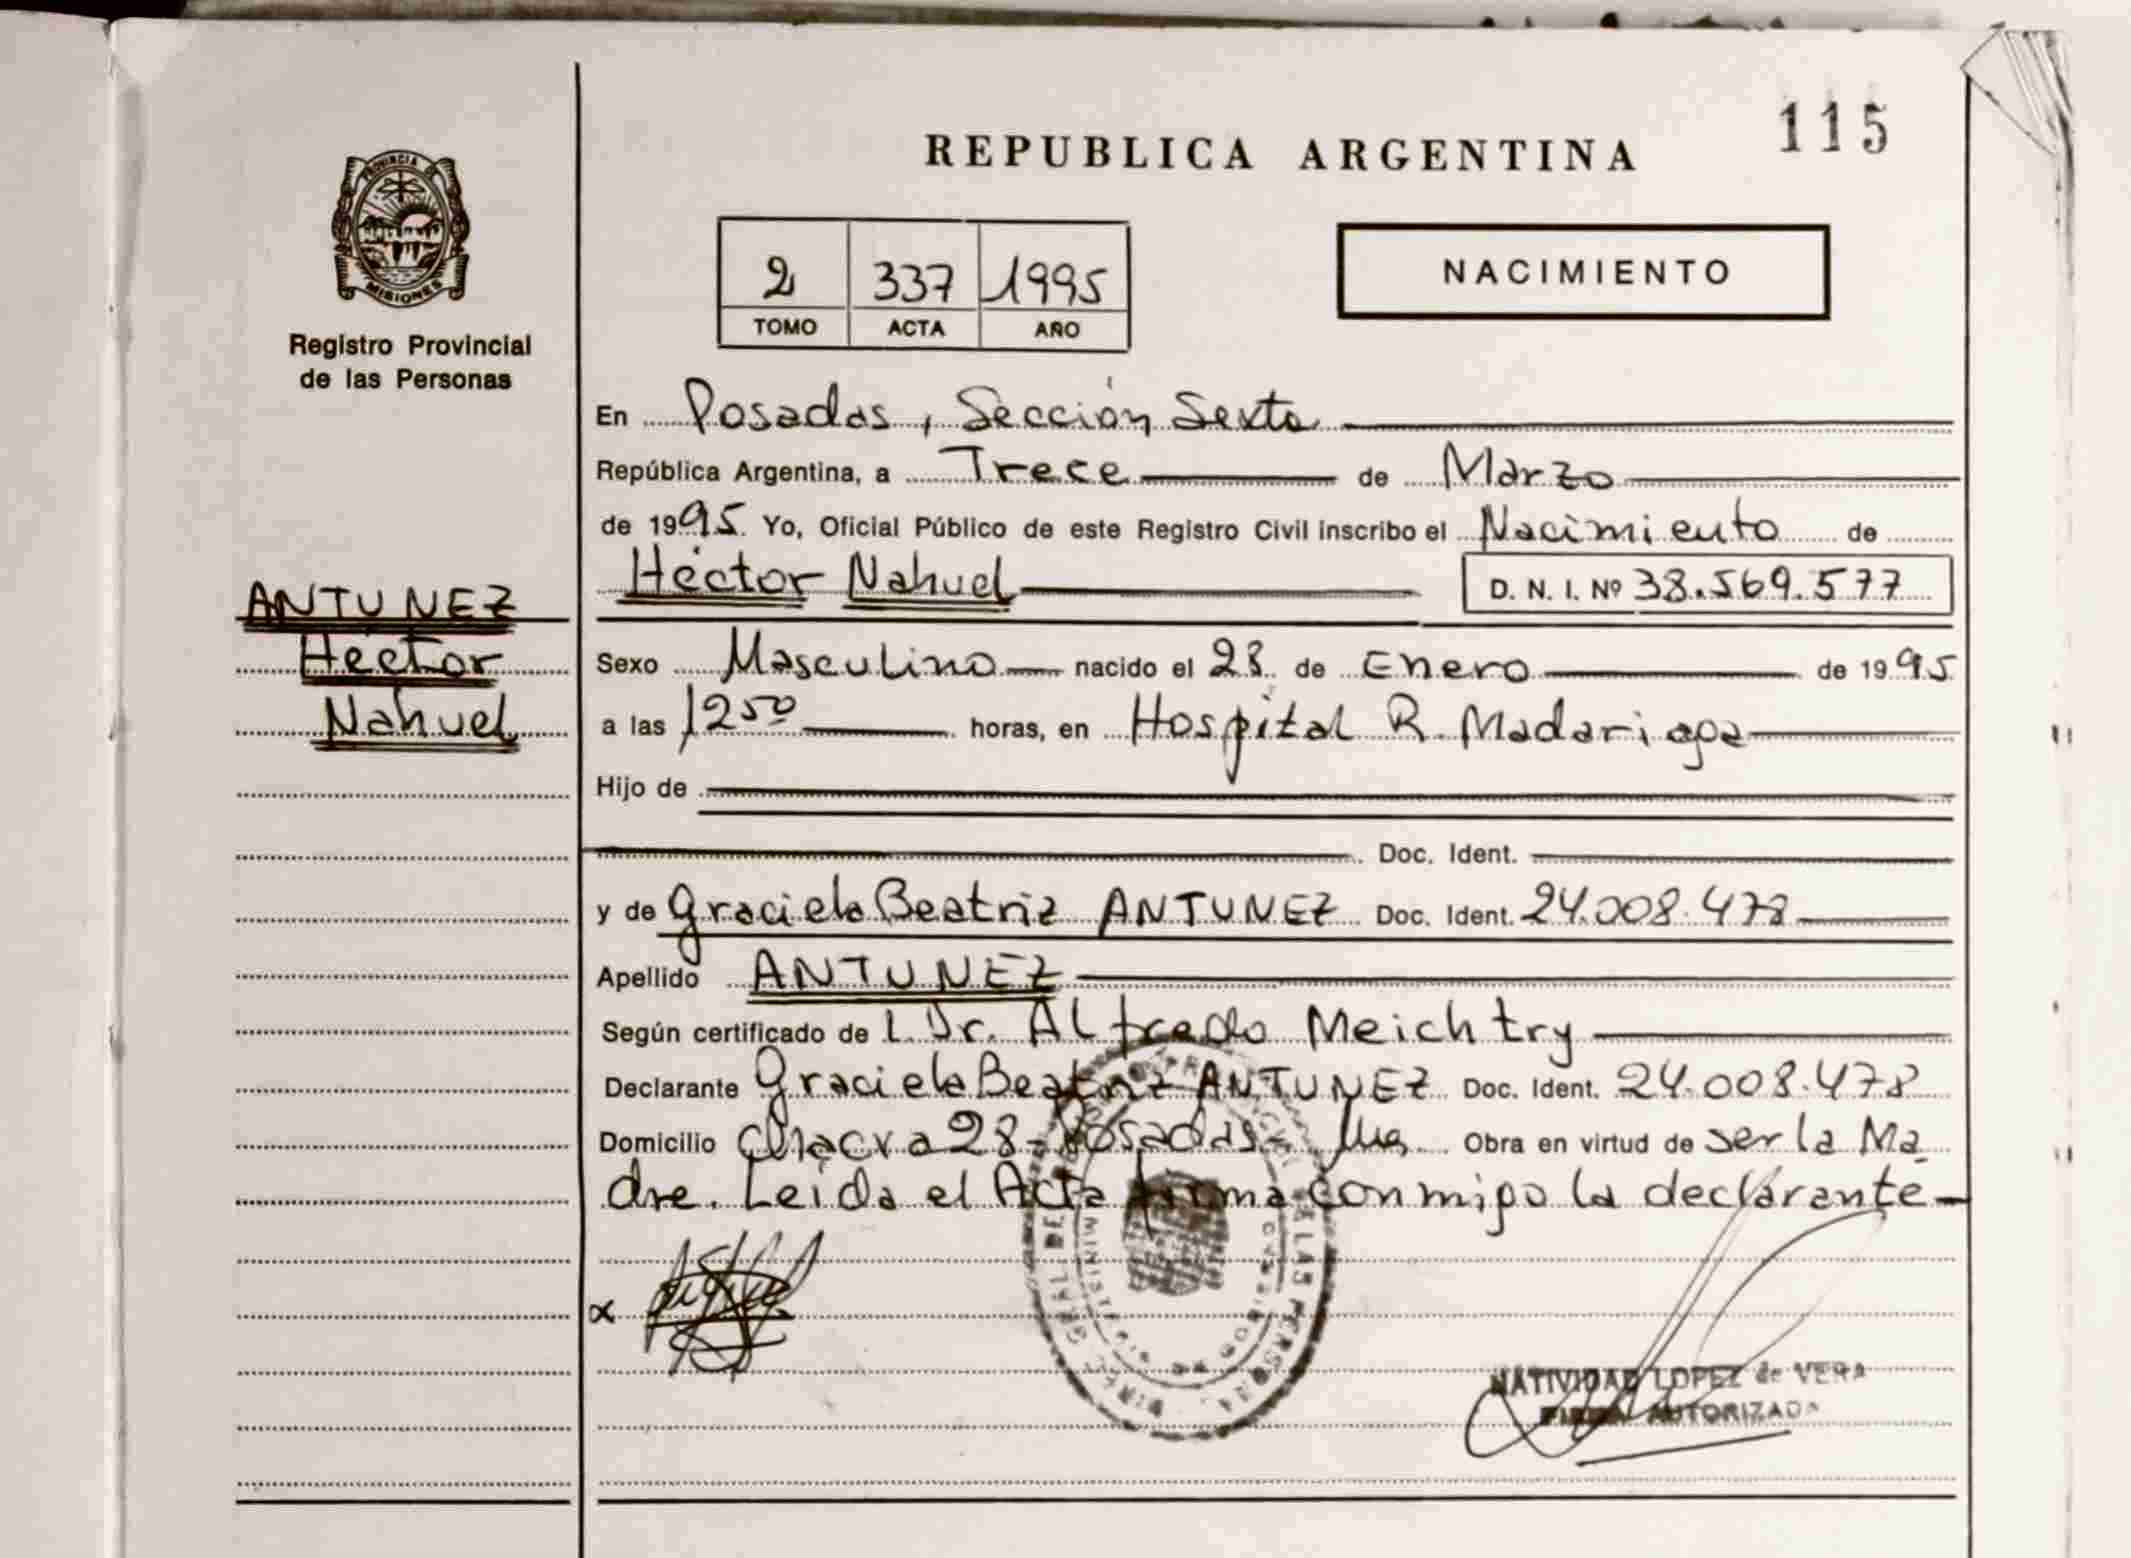 115
REPUBLICA ARGENTINA
PROVINCIA DE
MISIONES
Registro Provincial
de las Personas
2 337 1995
TOMO ACTA AÑO
NACIMIENTO
En Posadas, Sección Sexta
República Argentina, a Trece de Marzo
de 1995. Yo, Oficial Público de este Registro Civil inscribo el Nacimiento de
Héctor Nahuel D. N. I. Nº 38.569.577
ANTUNEZ
Héctor
Nahuel
Sexo Masculino nacido el 28 de Enero de 1995
a las 12 50 horas, en Hospital R. Madariaga
Hijo de
Doc. Ident.
y de Graciela Beatriz ANTUNEZ Doc. Ident. 24.008.478
Apellido ANTUNEZ
Según certificado de L. Dr. Alfredo Meichtry
Declarante Graciela Beatriz ANTUNEZ Doc. Ident. 24.008.478
Domicilio Chacra 28- Posadas- Obra en virtud de ser la Ma
dre. Leída el Acta firma conmigo la declarante
NATIVIDAD LOPEZ de VERA
FIRMA AUTORIZADA